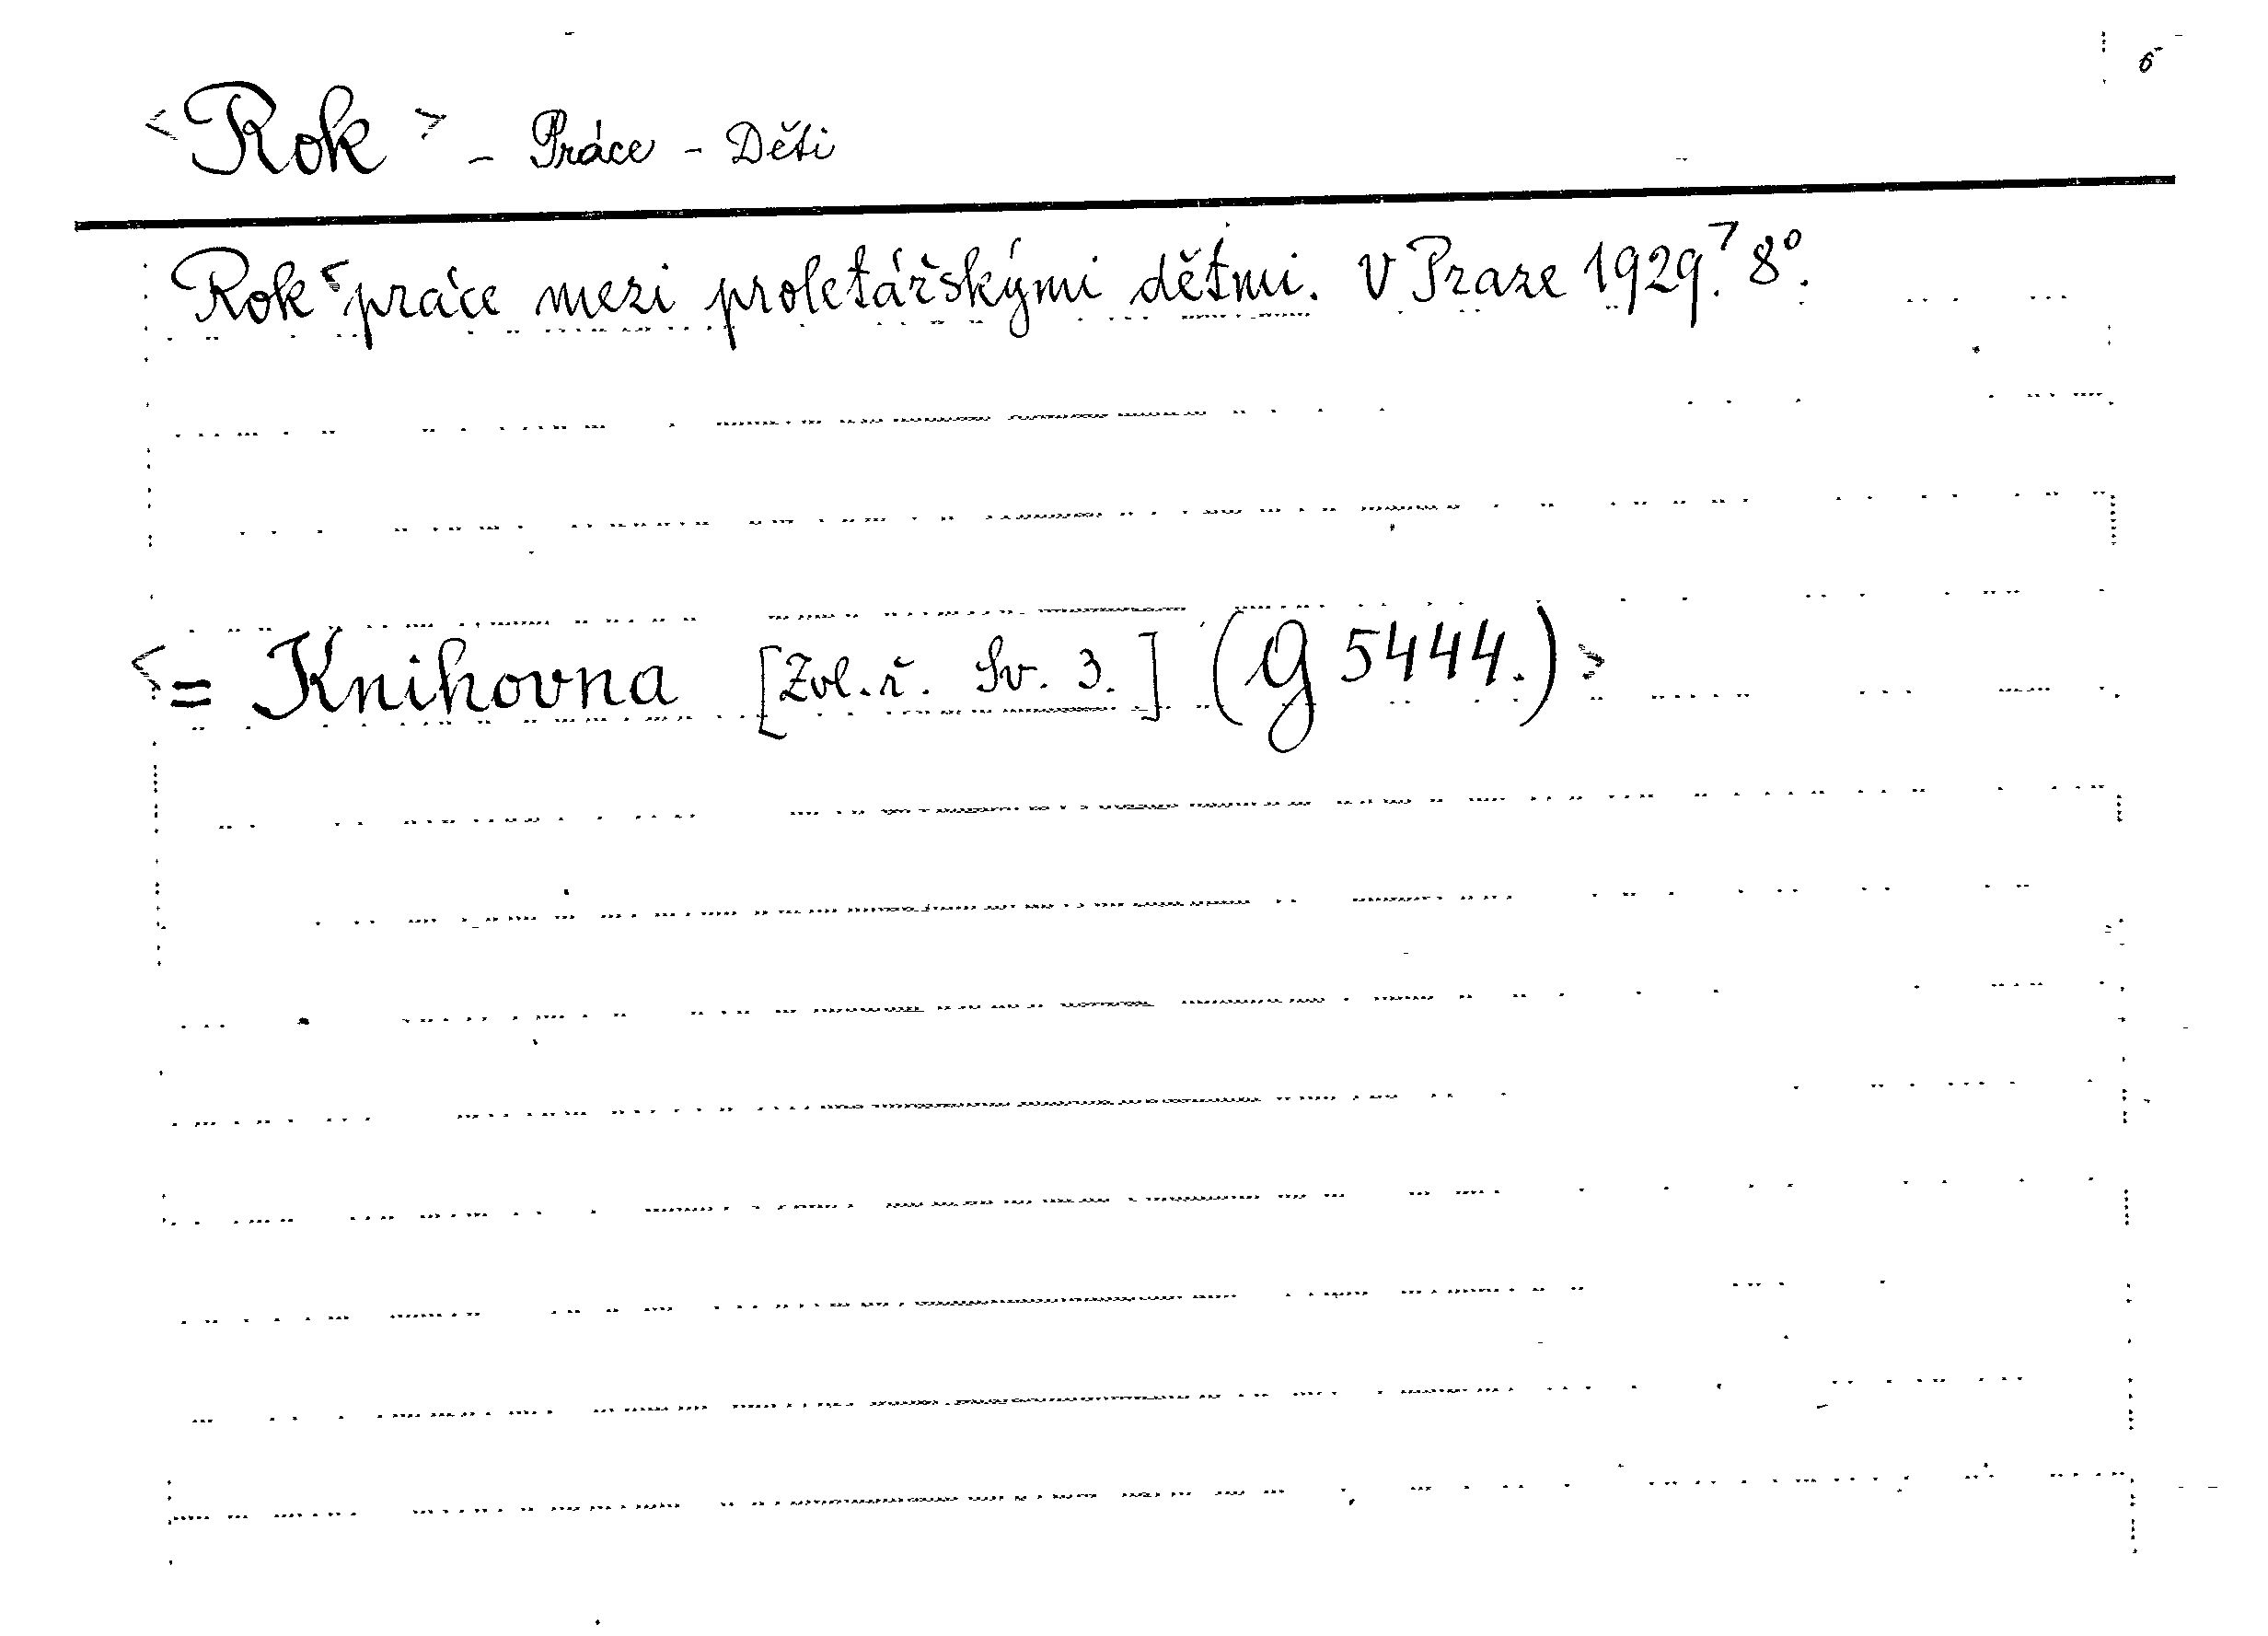 6
<Rok> - Práce - Děti
Rok <práce mezi proletářskými dětmi. V Praze 1929.> 8°.
<= Knihovna [Zvl. ř. Sv. 3.] (G 5444.)>